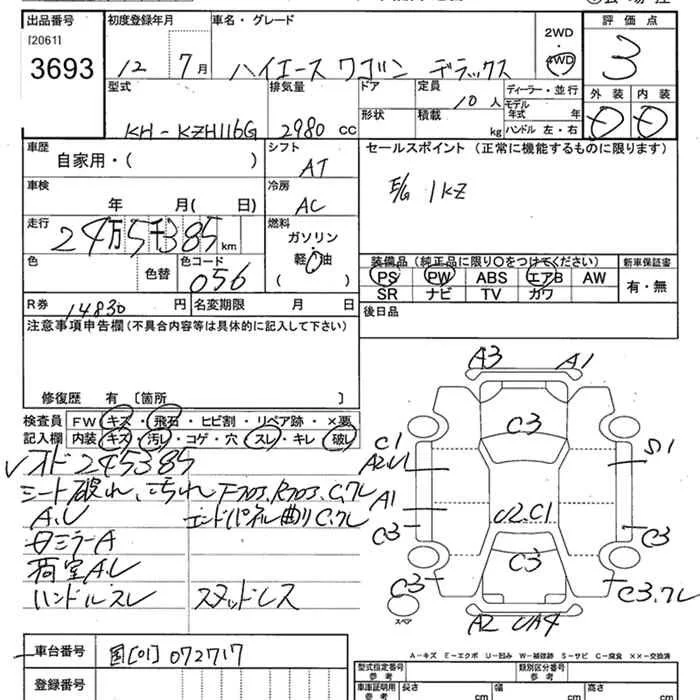 出品番号 初度登録年月 車名・グレード 評価点
[2061]
3693
12 7月 ハイエース ワゴン デラックス
2WD
・
4WD
3
型式 排気量 ドア 定員 ディーラー・並行 外装 内装
10人 モデル年式 年
KH-KZH116G 2980 cc 形状 積載 kg ハンドル 左・右
車歴 シフト セールスポイント (正常に機能するものに限ります)
自家用・( ) AT
E/G 1KZ
車検 冷房
年 月( 日) AC
走行 燃料
24万5千385km ガソリン
・
軽油
( )
色 色替 色コード 056
装備品(純正品に限り○をつけてください) 新車保証書
PS PW ABS エアB AW 有・無
SR ナビ TV カワ
R券 14830円 名変期限 月 日 後日品
注意事項申告欄(不具合内容等は具体的に記入して下さい)
修復歴 有 [箇所 ]
検査員記入欄
FW キズ・飛石・ヒビ割・リペア跡・×要
内装 キズ・汚レ・コゲ・穴・スレ・キレ・破レ
オド245385
シート破れ、汚れ
A.U エンドパネル曲り C.フレ
ハンドルスレ スタッドレス
A3 A1
C3
C1
A1 U2.C1
C3 C3
C3
C3 C3.フレ
スペア
A2
A-キズ E-エクボ U-凹み W-補修跡 S-サビ C-腐食 XX-交換済
車台番号 国[01]072717
登録番号
型式指定番号 類別区分番号
車庫証明用参考 長さ cm 幅 cm 高さ cm